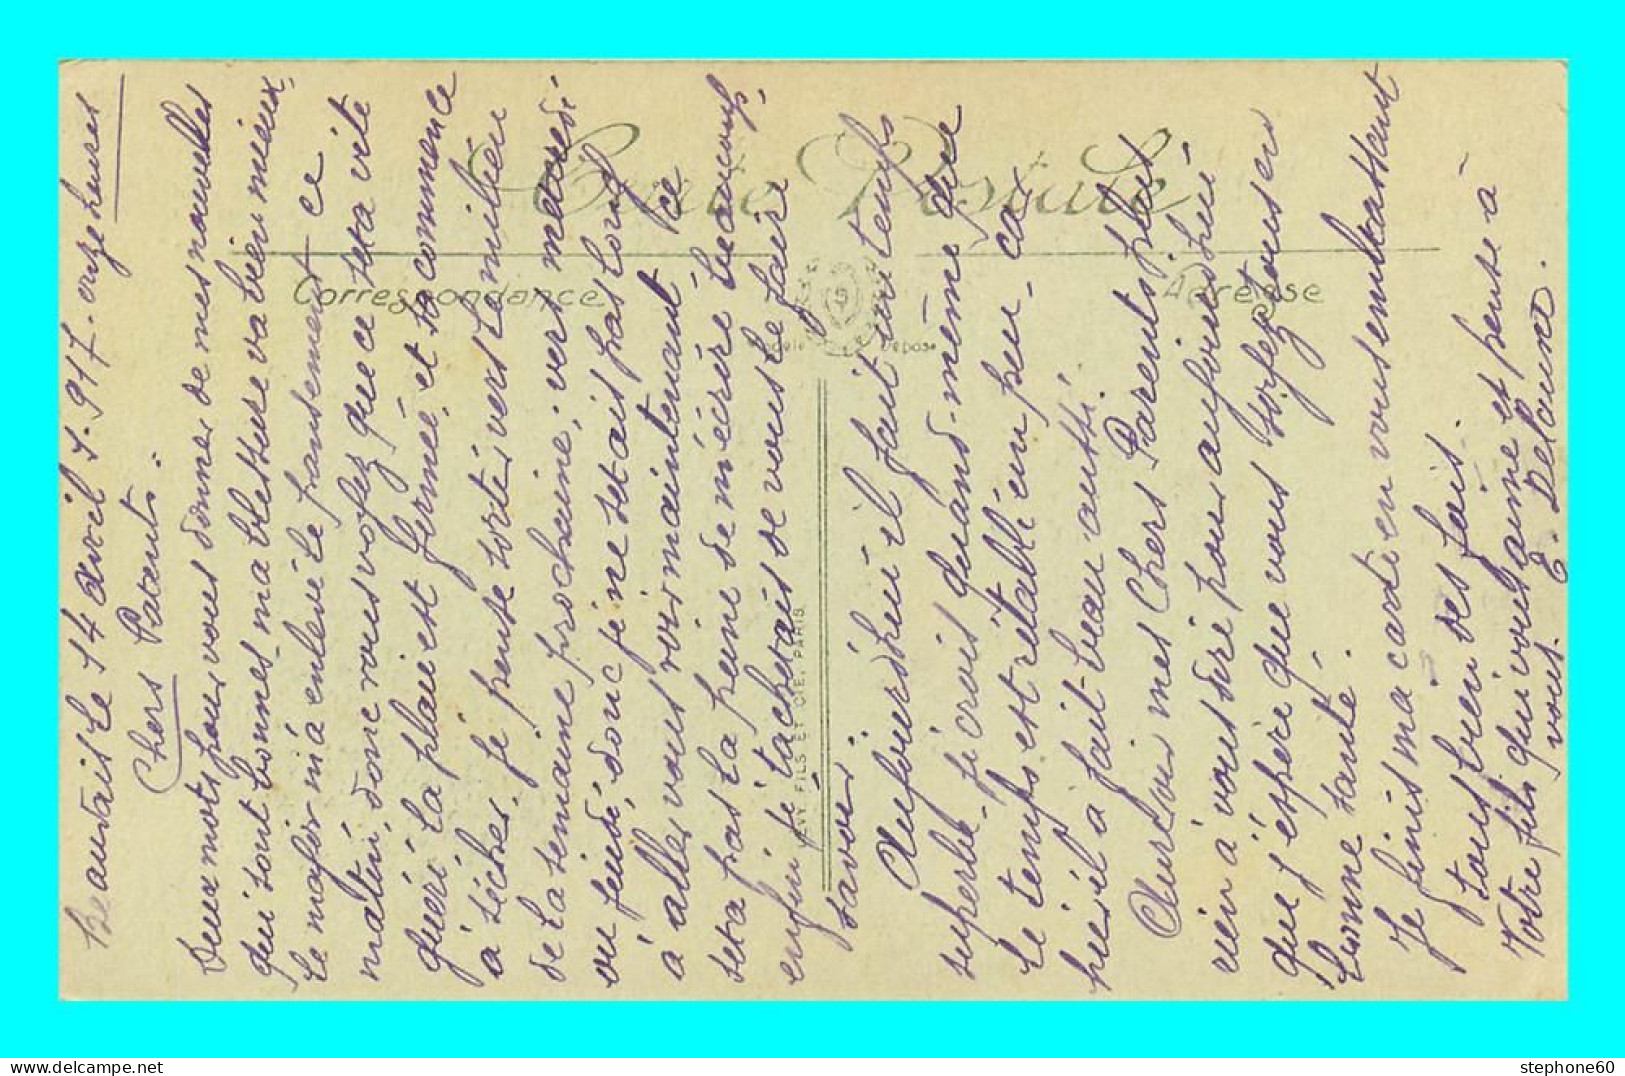 Beauvais le 14 avril 1917. onze heures
Chers Parents.
Deux mots pour vous donner de mes nouvelles
qui sont bonnes, ma blessure va bien mieux.
le major m'a enlevé le pansement ce
matin, donc vous voyez que ce sera vite
guéri la plaie est fermée, et sa commence
à sécher. Je pense sorti vers le milieu
de la semaine prochaine, vers mercredi
ou jeudi, donc je ne serais pas long
à aller vous voir maintenant ce
sera pas la peine de m'écrire beaucoup,
enfin je tacherais de vous le fair
savoir
Aujourdhui il fait un temps
superbe, je crois quand-même que
le temps est rétabli un peu, car
hier il a fait beau aussi.
Aurevoir mes Chers Parents plus
rien à vous dire pour aujourdhui
que j'espère que vous soyez tous en
bonne santé.
Je finis ma carte en vous embrassant
tous bien des fois.
Votre fils qui vous aime et pense à
vous. E. Delaune.
Carte Postale
Correspondance
Adresse
Modèle Déposé
LEVY FILS ET CIE, PARIS
stephone60